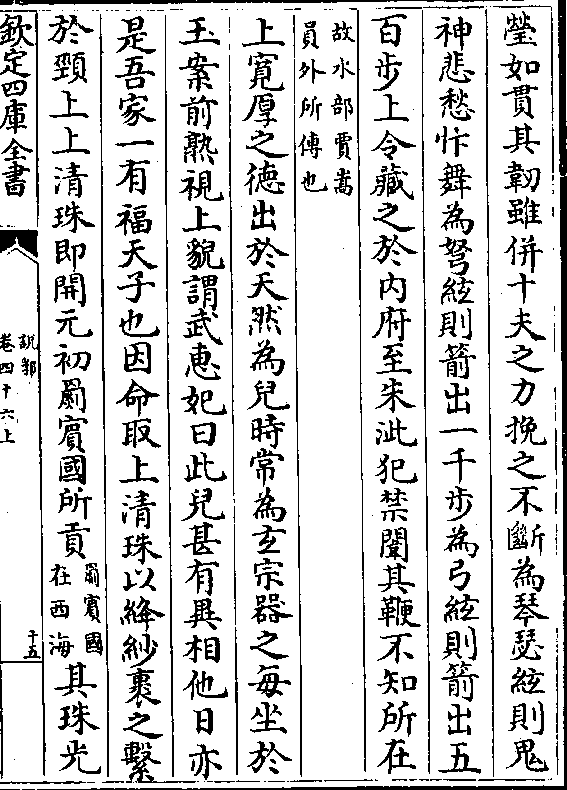 瑩如貫其韌雖併十夫之力挽之不斷為琴瑟絃則鬼
神悲愁忭舞為弩絃則箭出一千步為弓絃則箭出五
百步上令藏之於内府至朱泚犯禁闈其鞭不知所在
故水部賈嵩
員外所傳也
上寛厚之徳出於天然為兒時常為玄宗器之每坐於
玉案前熟視上貌謂武惠妃曰此兒甚有異相他日亦
是吾家一有福天子也因命取上清珠以絳紗裹之繫
於頸上上清珠即開元初罽賓國所貢
罽賓國
在西海
其珠光
欽定四庫全書
說郛
卷四十六上
十五